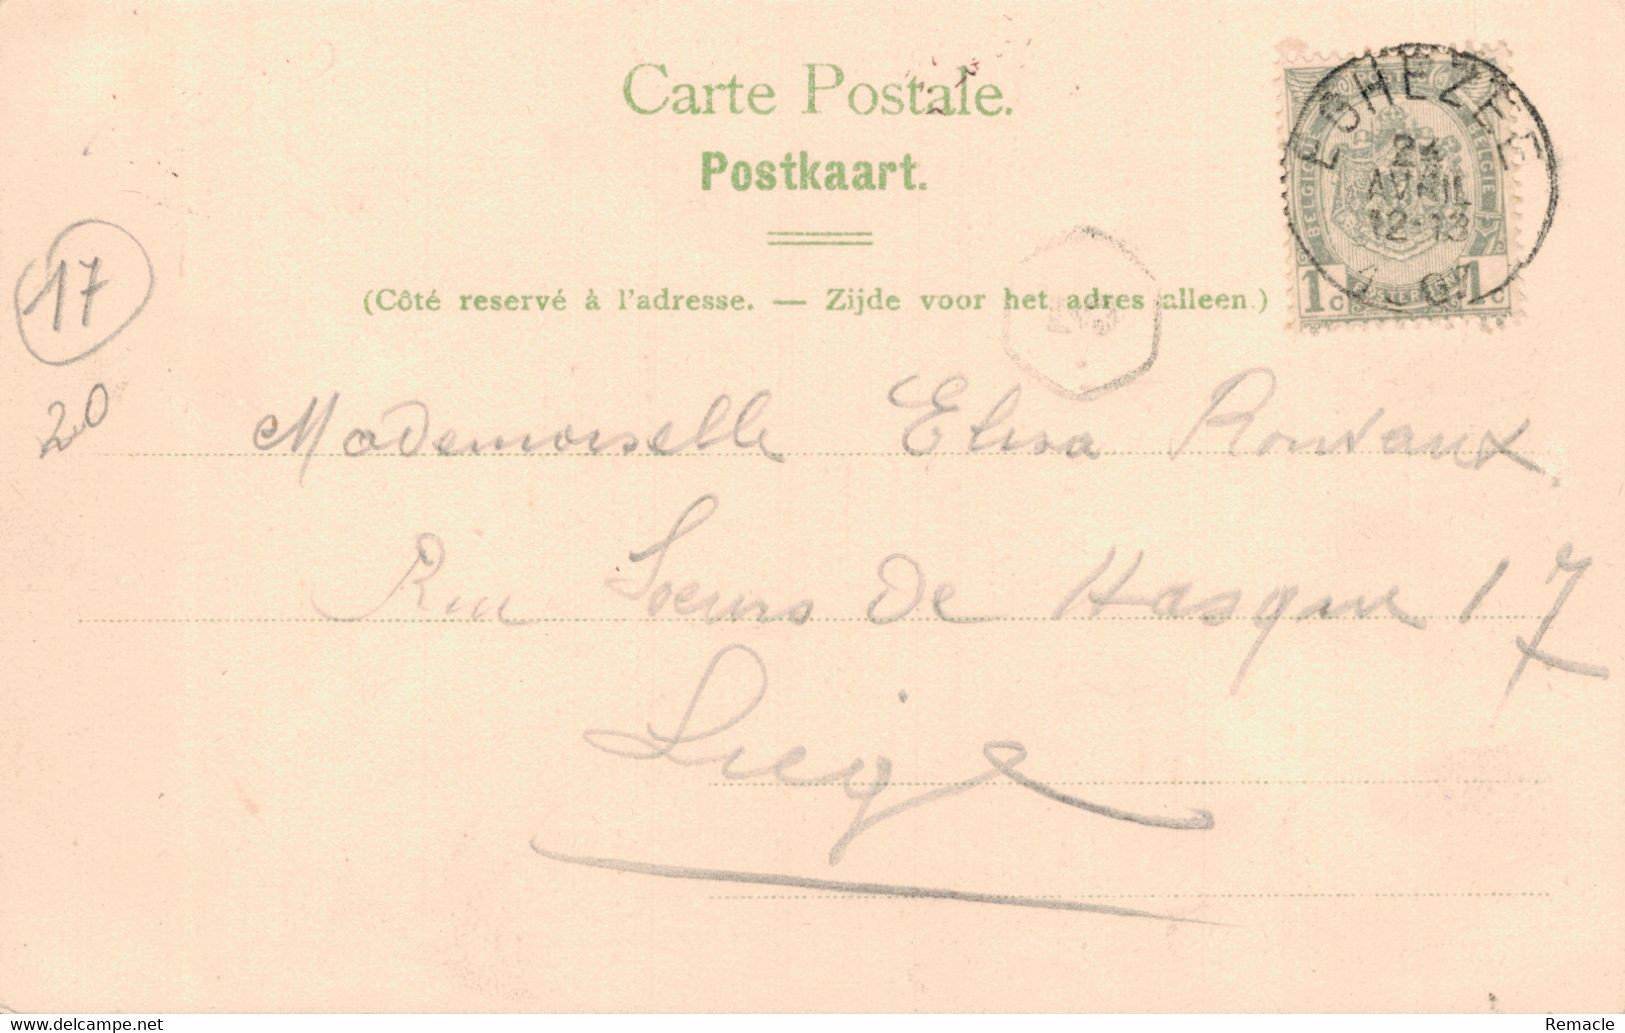 Carte Postale.
Postkaart.
(Côté reservé à l'adresse. — Zijde voor het adres alleen.)
BELGIQUE BELGIE
1c 1c
EGHEZEE
AVRIL
12-13
07
17
20
Mademoiselle Elisa
Rue Soeurs De Hasque 17
Liège
www.delcampe.net
Remacle